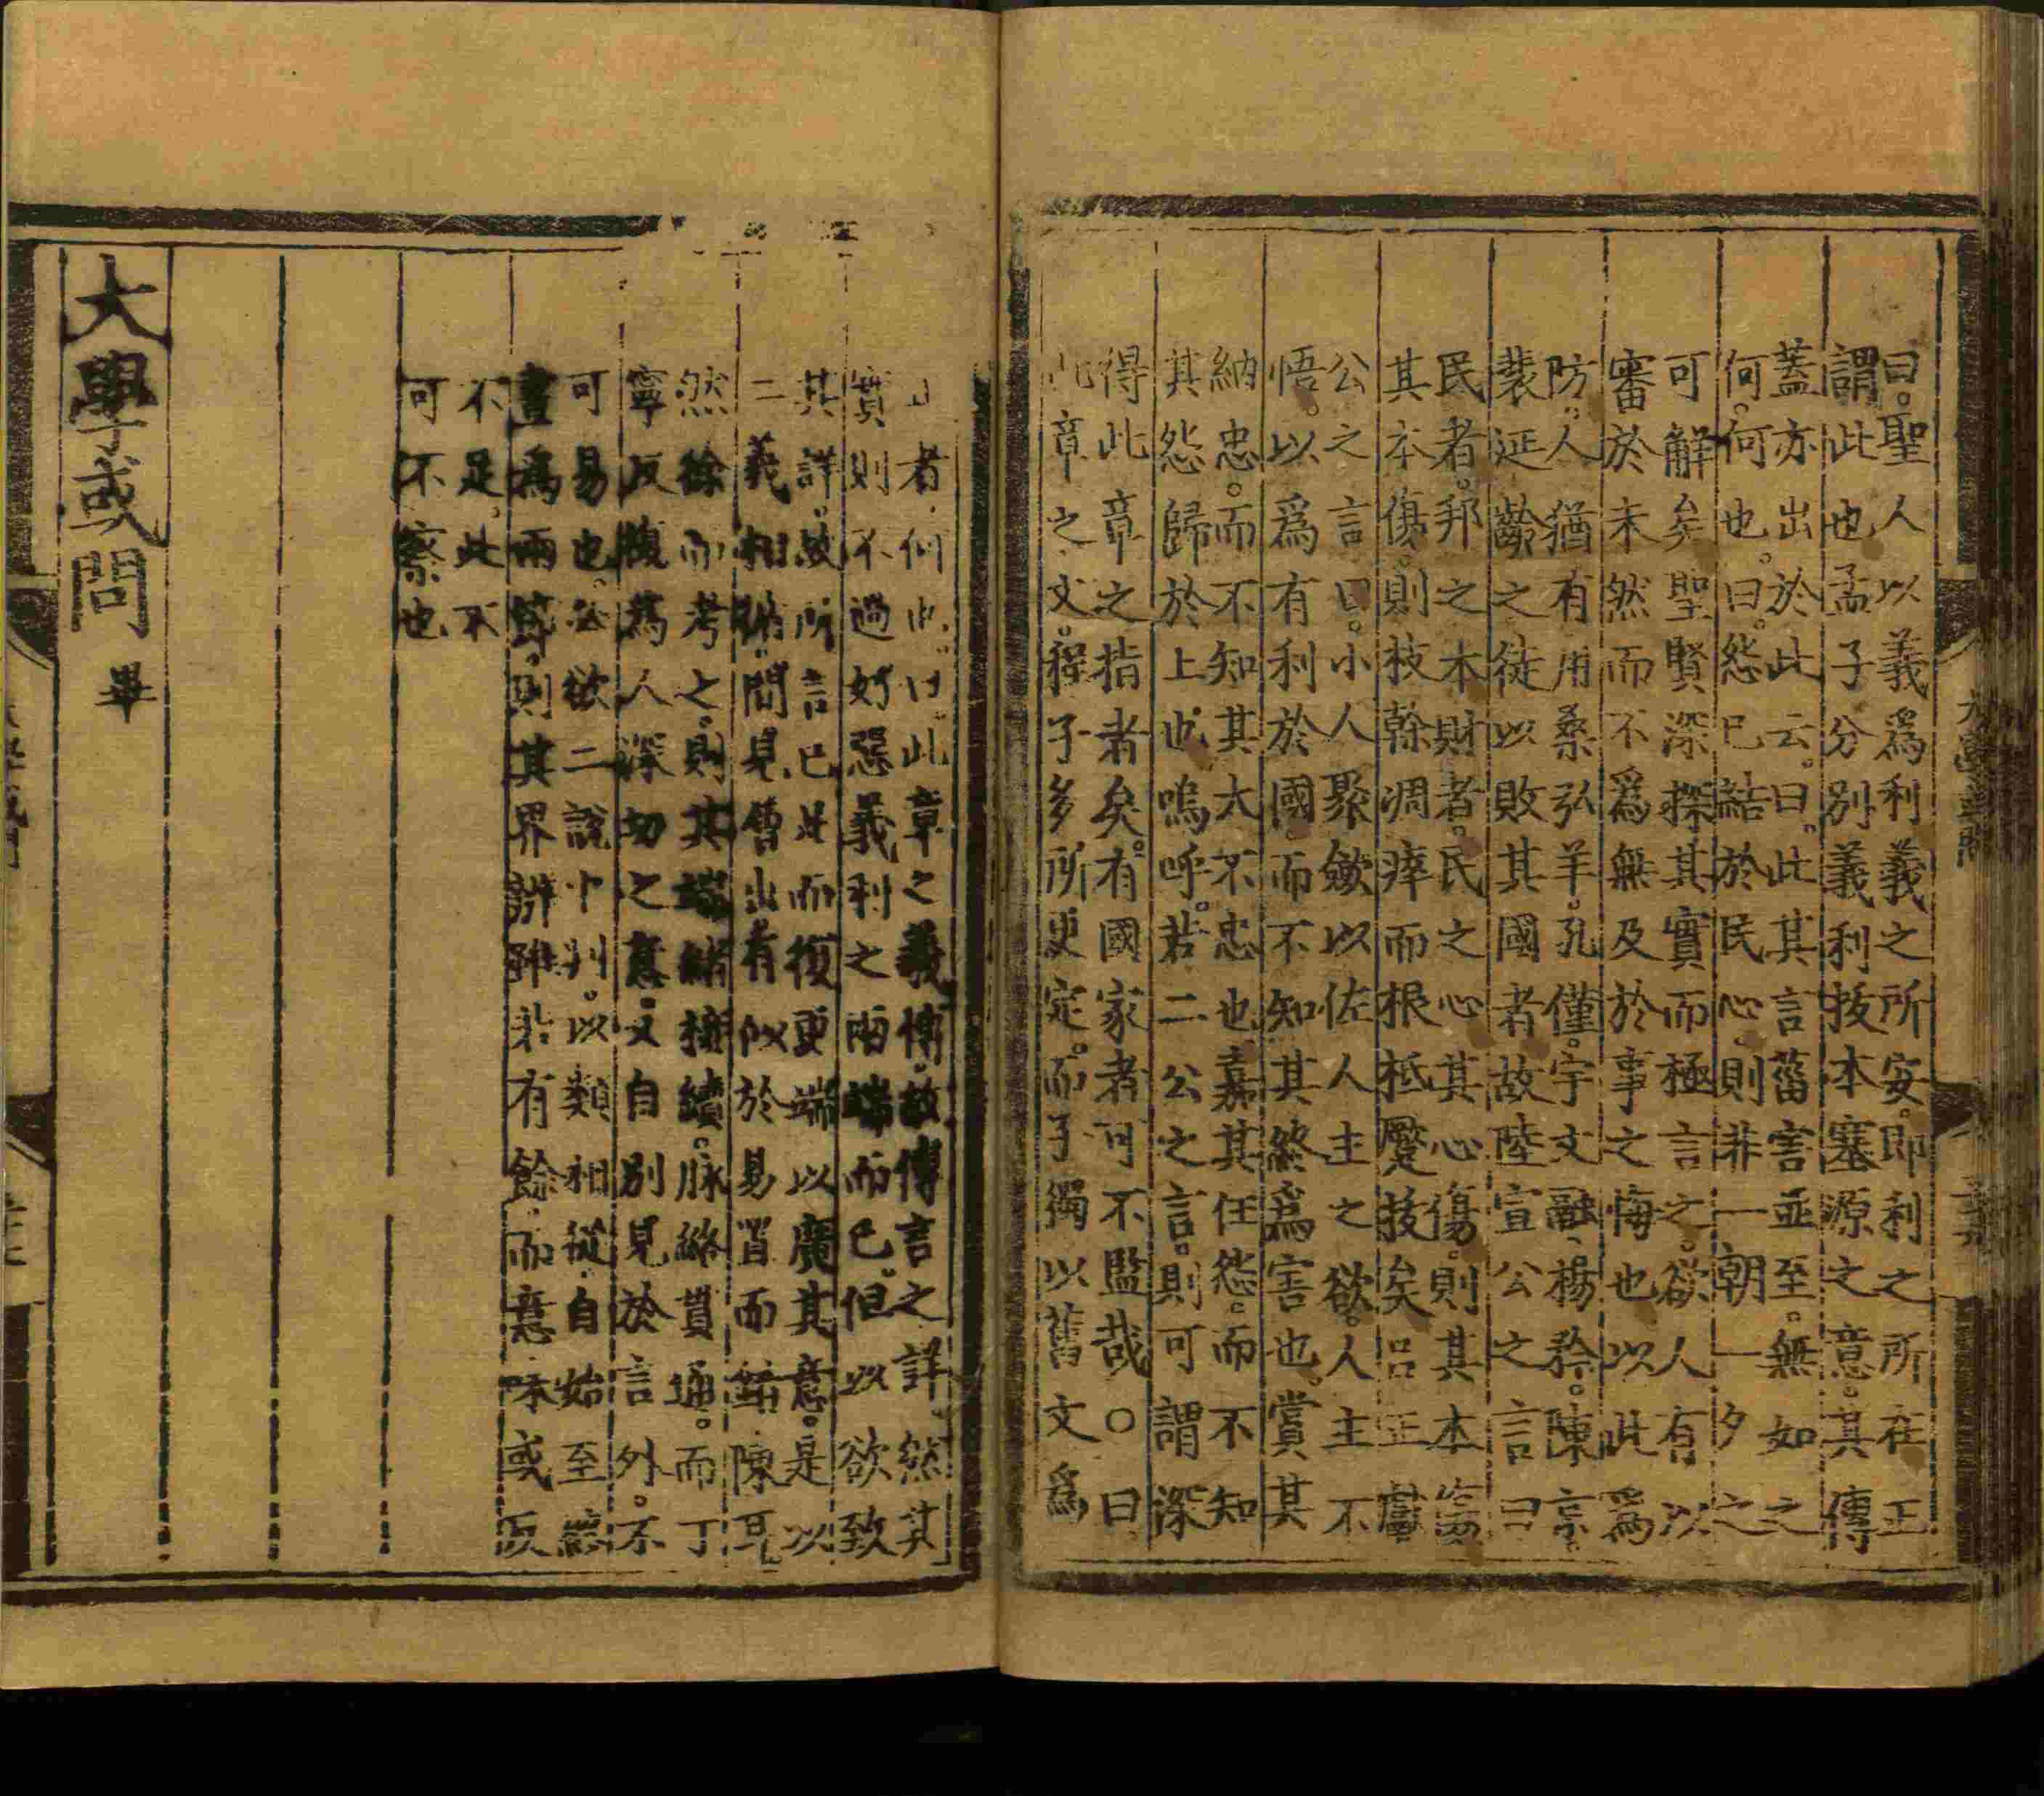 曰。聖人以義爲利義之所安。即利之所在正
謂此也孟子分別義利拔本塞源之意。其傳
蓋亦出於此云。曰。此其言菑害並至。無如之
何。何也。曰。怨已結於民心。則非一朝一夕之
可解矣聖賢深探其實而極言之。欲人有以
審於未然而不爲無及於事之悔也以此爲
防。人猶有用桑弘羊。孔僅。宇文融楊矜。陳京。
裴延齡之徒以敗其國者故陸宣公之言曰
民者。邦之本財者。民之心其心傷。則其本
其本傷。則枝幹凋瘁而根柢蹷拔矣呂正獻
公之言曰。小人聚斂以佐人主之欲。人主不
悟。以爲有利於國。而不知其終爲害也。賞其
納忠。而不知其大不忠也嘉其任怨。而不知
其怨歸於上也嗚呼。若二公之言。則可謂深
得此章之指者矣。有國家者可不監哉〇曰
此章之文。程子多所更定。而子獨以舊文爲
正者。何也。曰此章之義博。故傳言之詳然其
實則不過好惡義利之兩端而已。但以欲致
其詳。故所言已足而復更端以廣其意。是以
二義相循。間見曾出。有似於易置而錯陳耳
然徐而考之。則其端緒接續。脉絡貫通。而丁
寧反覆爲人深切之意。又自別見於言外。不
可易也。必欲二說中判。以類相從。自始至終
畫爲兩節。則其界辨雖若有餘。而意味或反
不足。此不
可不察也
大學或問 畢